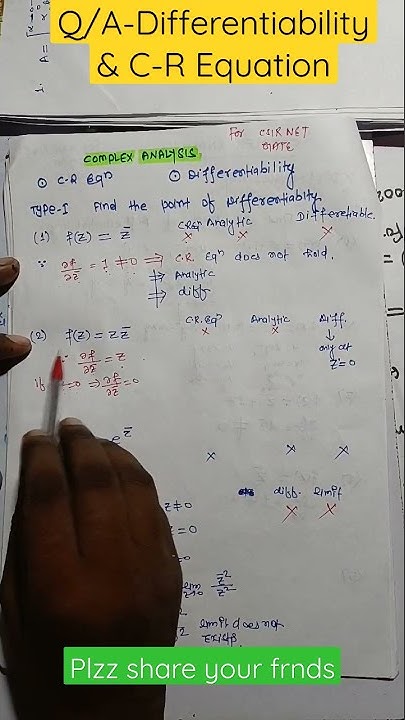 Q/A-Differentiability
& C-R Equation
For CSIR NET
GATE
COMPLEX ANALYSIS
⊙ C-R Eqⁿ ⊙ Differentiability
Type-I Find the point of Differentiability
C.R Eqⁿ Analytic Differetiable.
(1) f(z) = z̄ × × ×
∵ ∂f/∂z̄ = 1 ≠ 0 ⇒ C.R. Eqⁿ does not hold.
⇏ Analytic
⇏ diff
C.R. Eqⁿ Analytic Diff.
(2) f(z) = z z̄ × × ↓
only at
∂f/∂z̄ = z z=0
if =0 ⇒ ∂f/∂z̄ = 0
e^z̄ × × ×
diff. limit
z ≠ 0 × ×
z = 0
z̄²/z²
limit does not
Exists
Plzz share your frnds